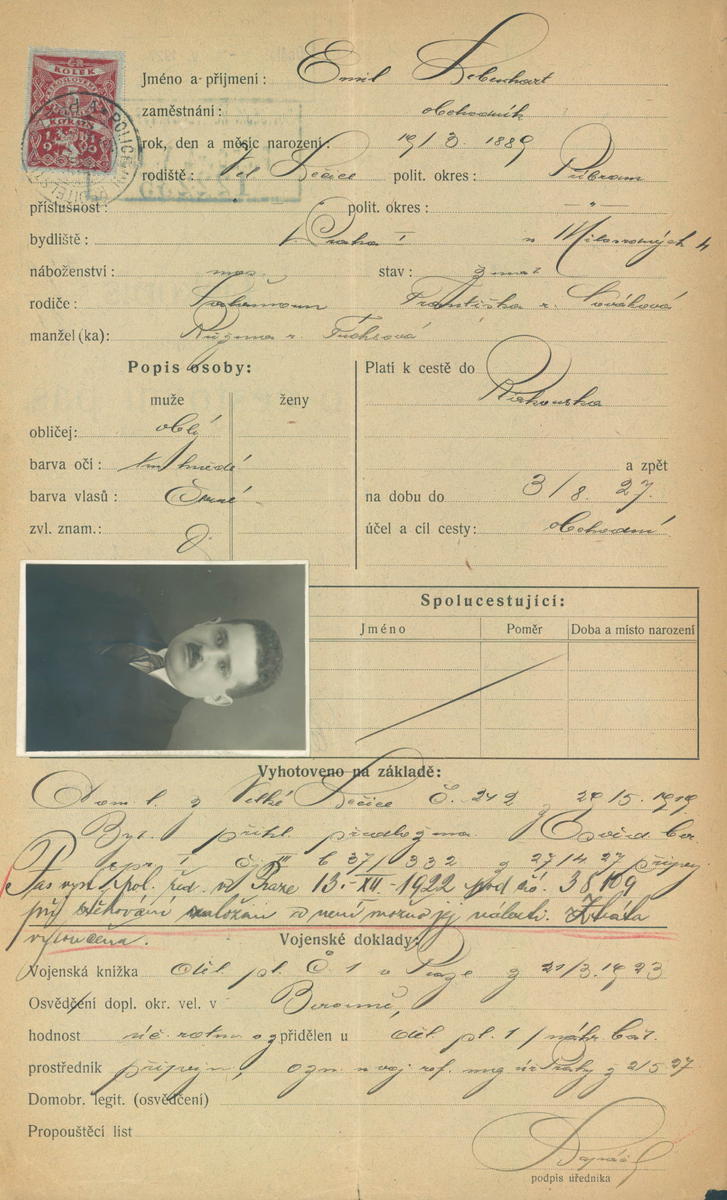 KOLEK
Jméno a příjmení: Emil Lebenhart
zaměstnání: obchodník
rok, den a měsíc narození: 19/3. 1889
rodiště: Vel Lečice polit. okres: Příbram
příslušnost: " polit. okres: — " —
bydliště: Praha I n Milosrdných 4
náboženství: mos. stav: ženat
rodiče: Františka r. Nováková
manžel (ka): Růžena r. Fuchsová
Popis osoby:
Platí k cestě do
muže ženy
Rakouska
obličej: oblý
barva očí: tm hnědé
a zpět
barva vlasů: černé
na dobu do 3/8. 27.
zvl. znam.:
účel a cíl cesty: obchodní
Spolucestující:
Jméno Poměr Doba a místo narození
Vyhotoveno na základě:
Dom l. z Velké Lečice Č. 242 z 29/5. 1919
Byt. přihl. předložena.
č 37/332 z 27/4 27 připoj.
Pas vyst. pol. řed. v Praze 13.-XII.-1922 pod čís. 38109
při stěhování založen a není možno jej nalézti. Ztráta
vyloučena.
Vojenské doklady:
Vojenská knížka odd. pl. č 1 v Praze z 21/3. 1923
Osvědčení dopl. okr. vel. v Berouně,
hodnost přidělen u pl. 1/náhr. bat.
prostředník připojen, ozn. voj. ref. mag úř Prahy z 2/5 27
Domobr. legit. (osvědčení)
Propouštěcí list
podpis úředníka